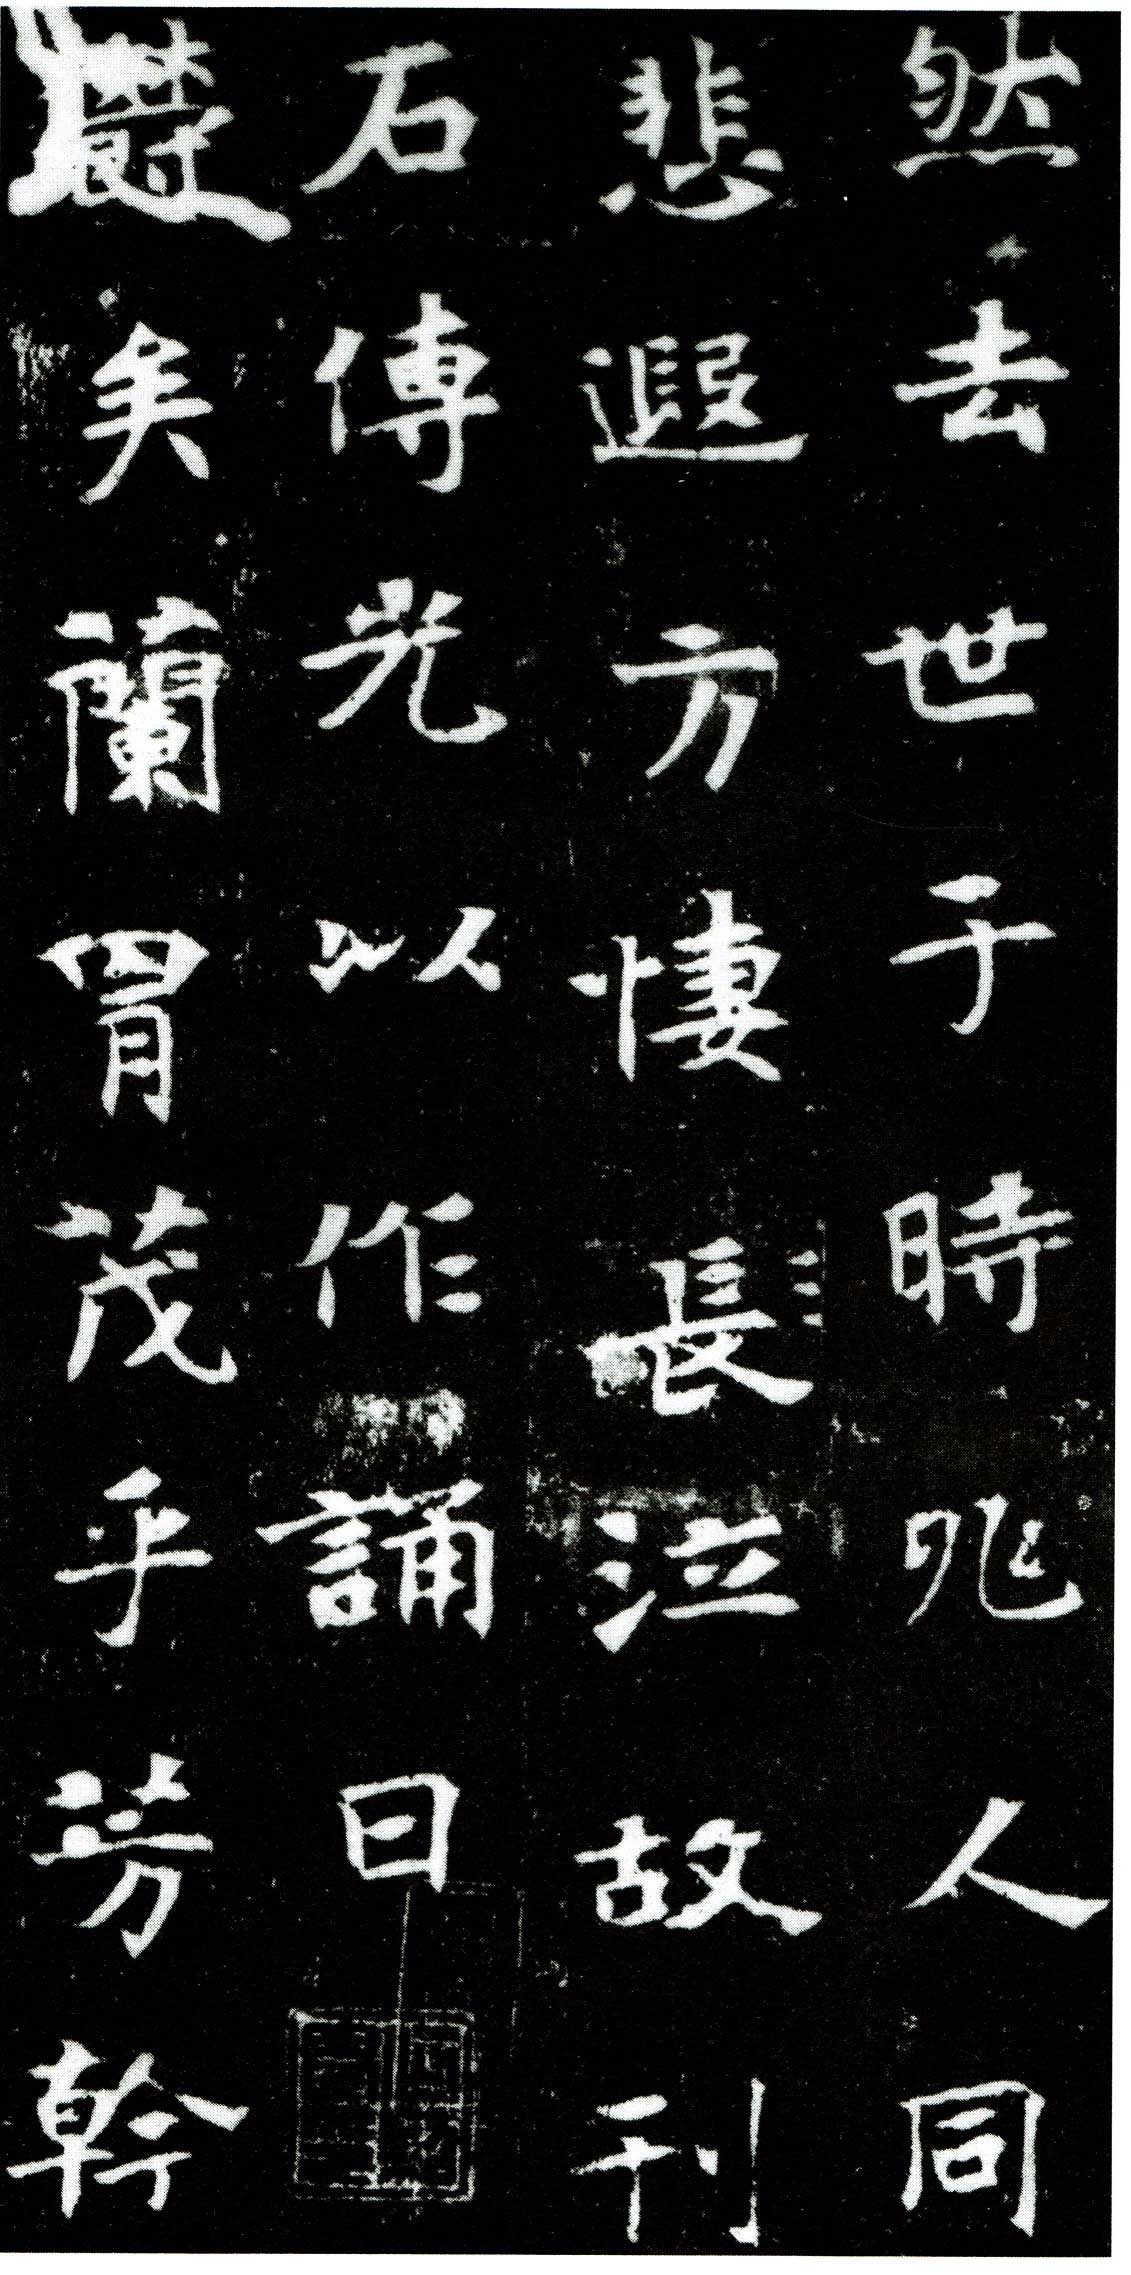 然去世于時兆人同
悲遐方悽長泣故刊
石傳光以作誦曰
欝矣蘭胃茂乎芳幹